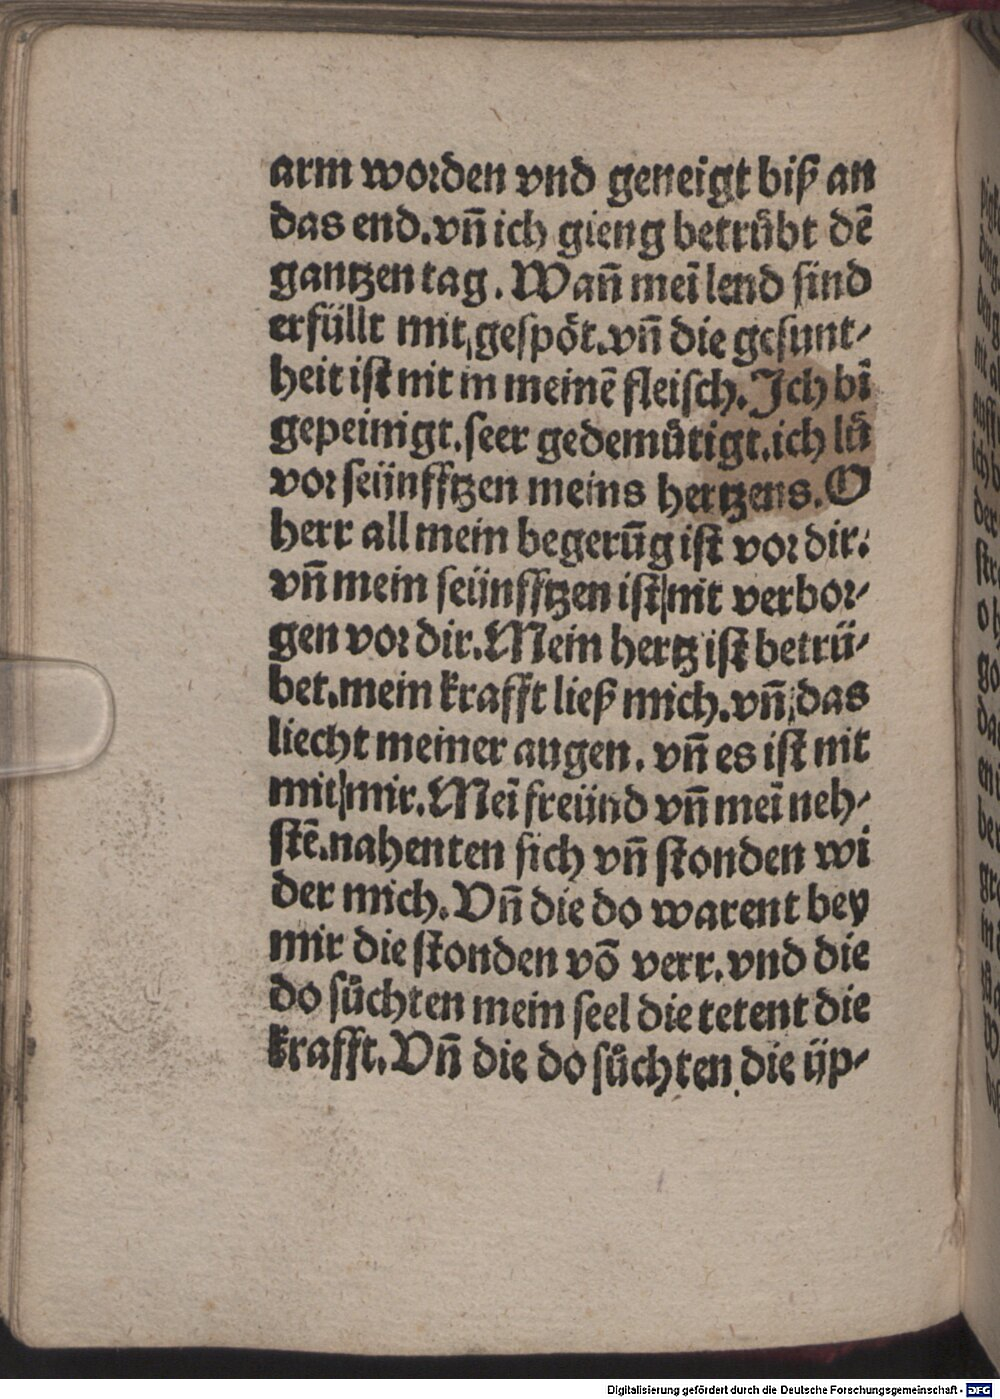 arm worden vnd geneigt biß an
das end. vñ ich gieng betruͤbt dẽ
gantzen tag. Wañ meĩ lend sind
erfüllt mit gespoͤt. vñ die gesunt⸗
heit ist nit in meinẽ fleisch. Ich bĩ
gepeinigt. seer gedemuͤtigt. ich luͤ
vor seünfftzen meins hertzens. O
herr all mein begerũg ist vor dir.
vñ mein seünfftzen ist nit verbor⸗
gen vor dir. Mein hertz ist betrü⸗
bet. mein krafft ließ mich. vñ das
liecht meiner augen. vñ es ist nit
mit mir. Meĩ freünd vñ meĩ neh⸗
stẽ. nahenten sich vñ stonden wi
der mich. Vñ die do warent bey
mir die stonden võ verr. vnd die
do suͦchten mein seel die tetent die
krafft. Vñ die do suͦchten die üp⸗
Digitalisierung gefördert durch die Deutsche Forschungsgemeinschaft - DFG